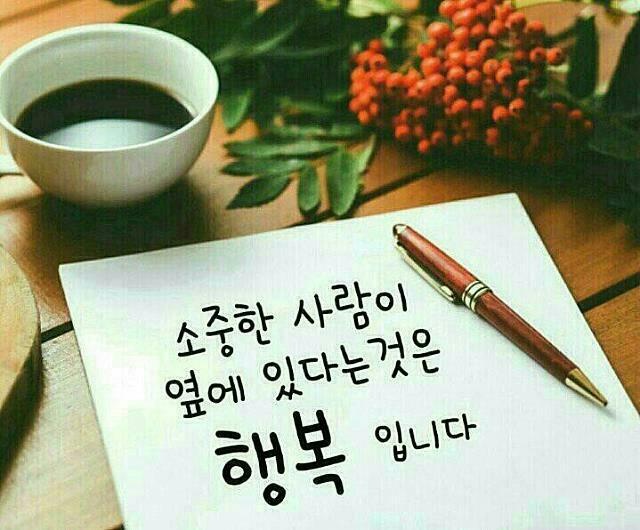 소중한 사람이
옆에 있다는것은
행복 입니다